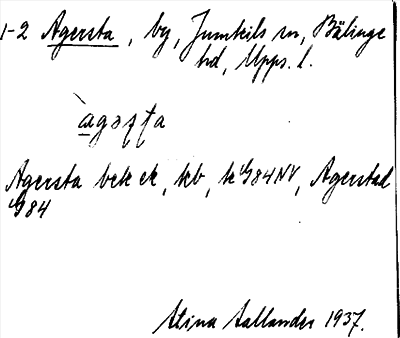 1-2 Agersta, by, Jumkils sn, Bälinge
hd, Upps. l.
Agersta bek ek, kb, k G84NV, Agerstad
G84
Stina Sallander 1937.